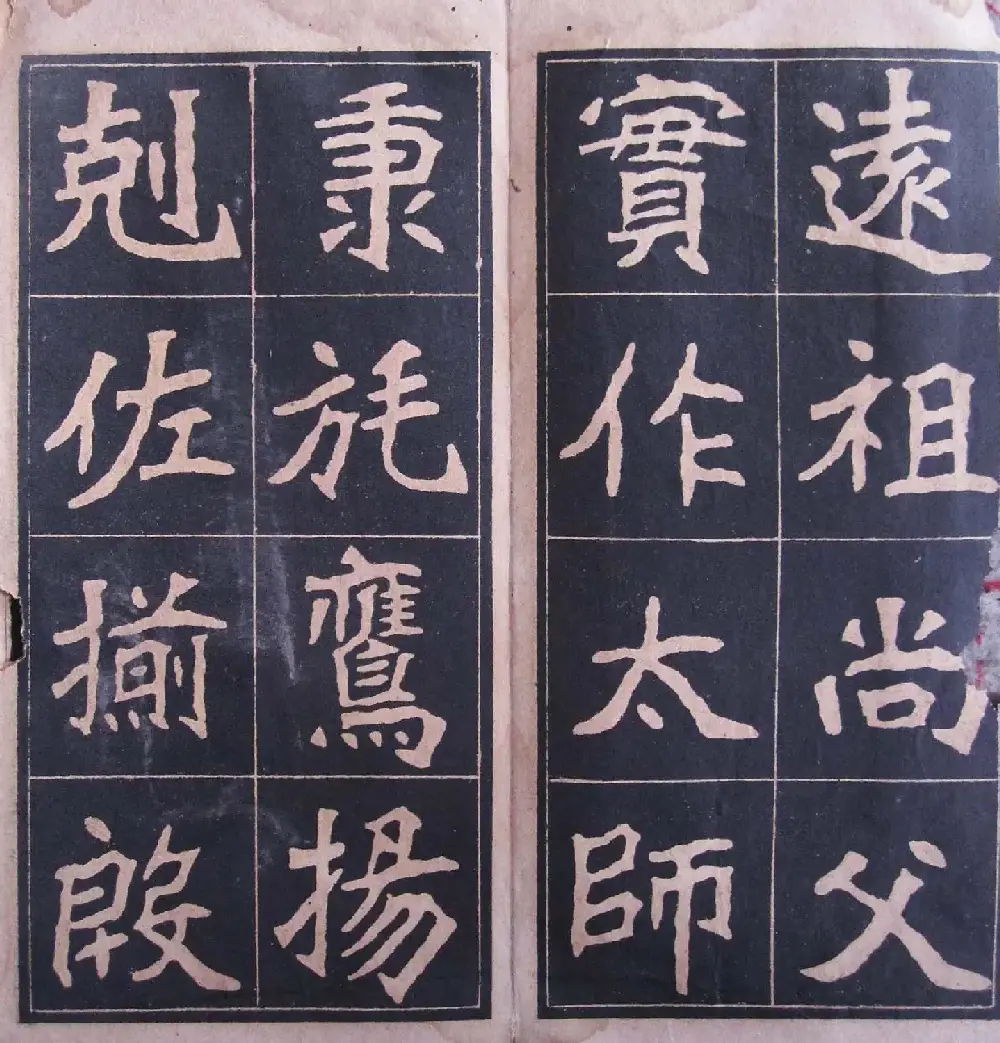 遠祖尚父
實作太師
秉旄鷹揚
剋佐揃殷